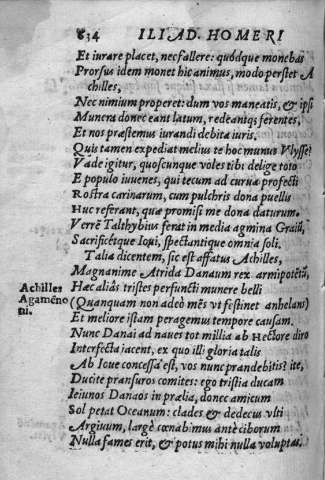 834 ILIAD. HOMERI
Et iurare placet, nec fallere: quódque monebas
Prorsus idem monet hic animus, modo perstet A
chilles,
Nec nimium properet: dum vos maneatis, & ipsi
Munera donec eant latum, redeantq; ferentes,
Et nos præstemus iurandi debita iuris,
Quis tamen expediat melius te hoc munus Vlysse?
Vade igitur, quoscunque voles tibi delige toto
E populo iuvenes, qui tecum ad curua profecti
Rostra carinarum, cum pulchris dona puellis
Huc referant, quæ promisi me dona daturum.
Verrē Talthybius ferat in media agmina Graiū,
Sacrificētque Ioui, spectantique omnia soli.
Talia dicentem, sic est affatus Achilles,
Magnanime Atrida Danaum rex armipotētū,
Achilles Hæc aliâs tristes perfuncti munere belli
Agamēno (Quanquam non adeò mēs vt festinet anhelans)
ni. Et meliore istam peragemus tempore causam.
Nunc Danai ad naues tot millia ab Hectore diro
Interfecta iacent, ex quo illi gloria talis
Ab Ioue concessa est, vos nunc prandebitis? ite,
Ducite pransuros comites: ego tristia ducam
Ieiunos Danaos in prælia, donec amicum
Sol petat Oceanum: clades & dedecus vlti
Argiuum, largè cœnabimus antè ciborum
Nulla fames erit, & potus mihi nulla voluptas.